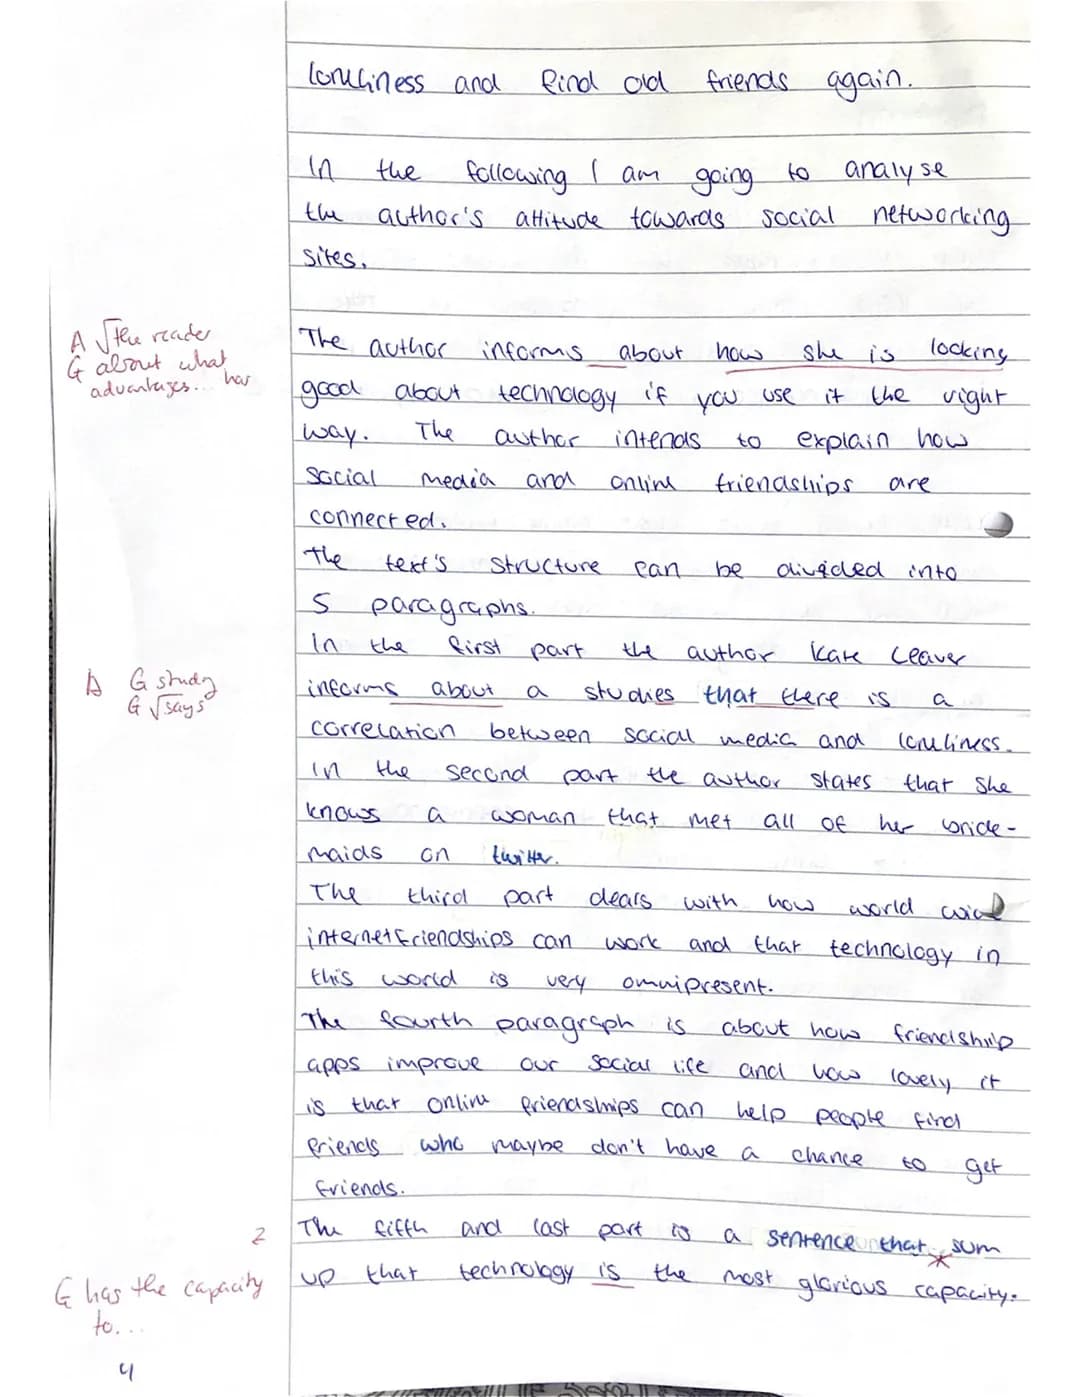 loneliness and find old friends again.
In the following I am going to analyse
the author's attitude towards social networking
sites.
A √the reader
G about what
advantages... has
The author informs about how she is looking
good about technology if you use it the right
way. The author intends to explain how
social media and online friendships are
connected.
The text's structure can be divided into
5 paragraphs.
In the first part the author Kate Leaver
A G study
G √says
informs about a studies that there is a
correlation between social media and loneliness.
In the second part the author states that she
knows a woman that met all of her bride-
maids on twitter.
The third part deals with how world wide
internetfriendships can work and that technology in
this world is very omnipresent.
The fourth paragraph is about how friendship
apps improve our social life and how lovely it
is that online friendships can help people find
friends who maybe don't have a chance to get
friends.
Z
The fifth and last part is a sentence that sum
up that technology is the most glorious capacity.
G has the capacity
to...
4